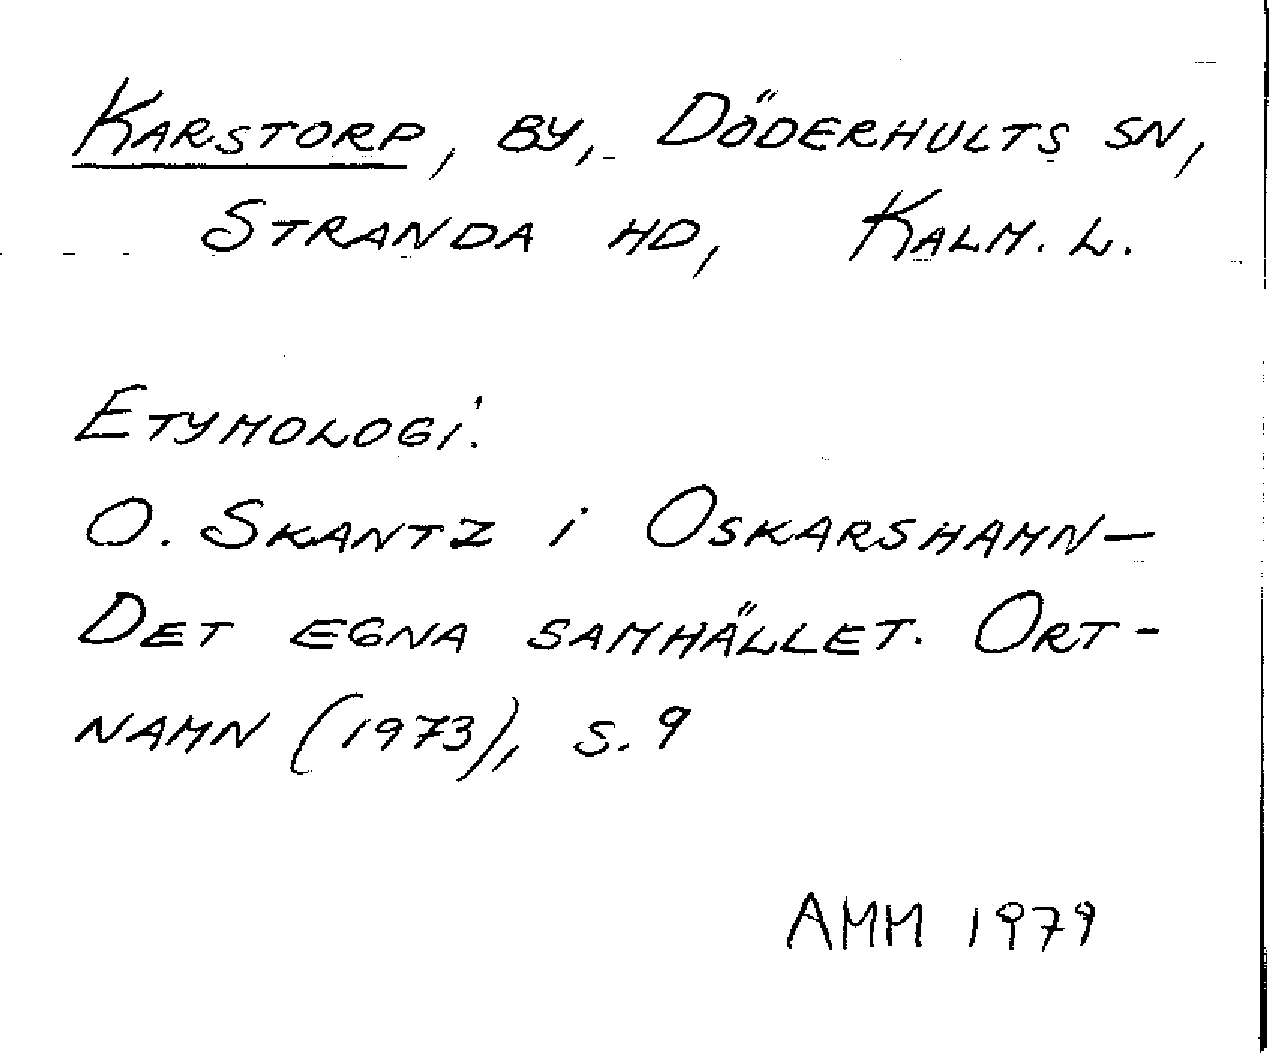 KARSTORP, BY, DÖDERHULTS SN,
STRANDA HD, KALM. L.
ETYMOLOGI:
O. SKANTZ i OSKARSHAMN–
DET EGNA SAMHÄLLET. ORT-
NAMN (1973), S. 9
AMM 1979